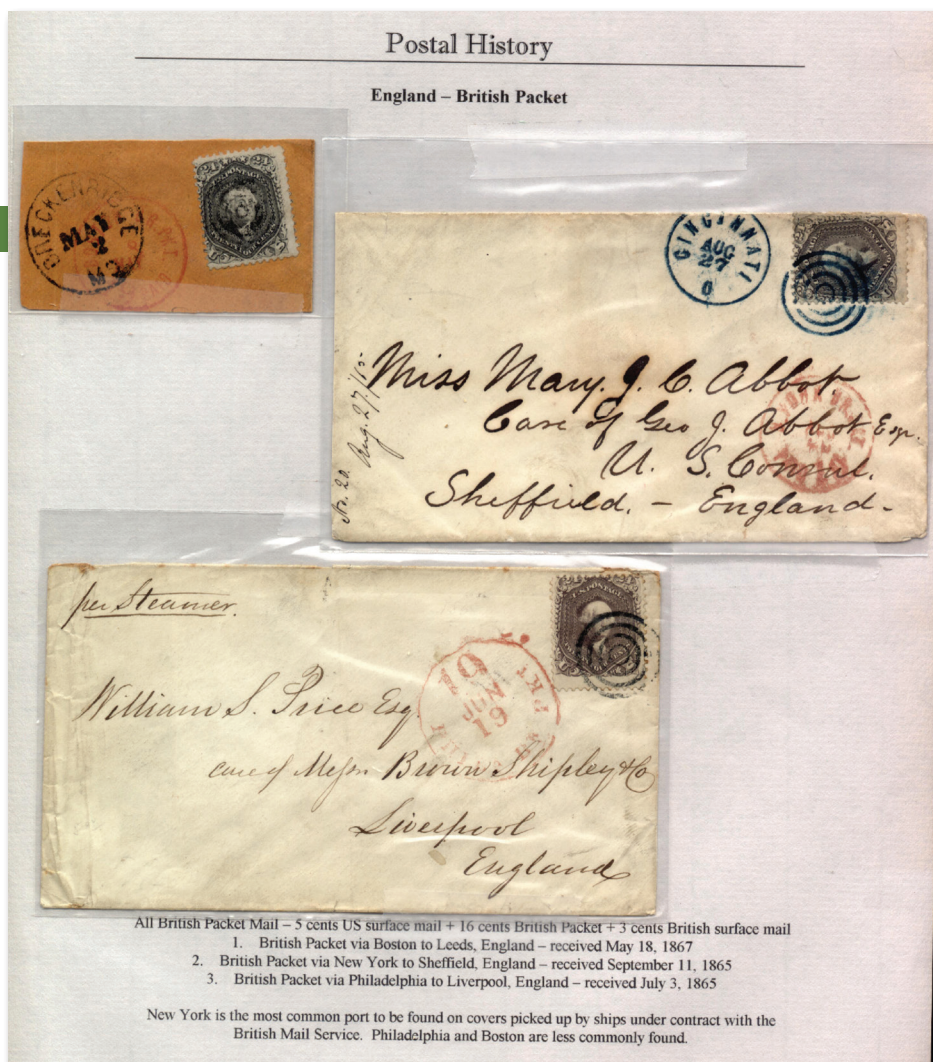 Postal History
England – British Packet
BRECKENRIDGE
MAY
2
MO
24 24
U.S. POSTAGE
CINCINNATI
AUG
27
No. 20. Aug. 27/65
Miss Mary. J. C. Abbot.
Care of Geo J. Abbot Esqr.
U. S. Consul.
Sheffield. – England.
per Steamer.
U.S. POSTAGE
10
JUN
19
PKT
William S. Price Esq.
care of Messrs Brown Shipley & Co
Liverpool
England
All British Packet Mail – 5 cents US surface mail + 16 cents British Packet + 3 cents British surface mail
1. British Packet via Boston to Leeds, England – received May 18, 1867
2. British Packet via New York to Sheffield, England – received September 11, 1865
3. British Packet via Philadelphia to Liverpool, England – received July 3, 1865
New York is the most common port to be found on covers picked up by ships under contract with the
British Mail Service. Philadelphia and Boston are less commonly found.